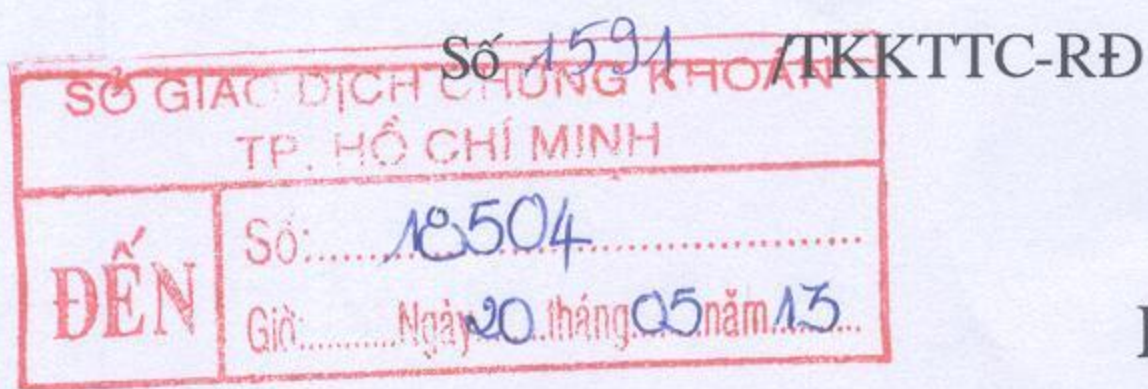 Số 1591 /TKKTTC-RĐ
SỞ GIAO DỊCH CHỨNG KHOÁN
TP. HỒ CHÍ MINH
ĐẾN
Số:.....18504.....................
Giờ:..........Ngày20..tháng.05năm.13...